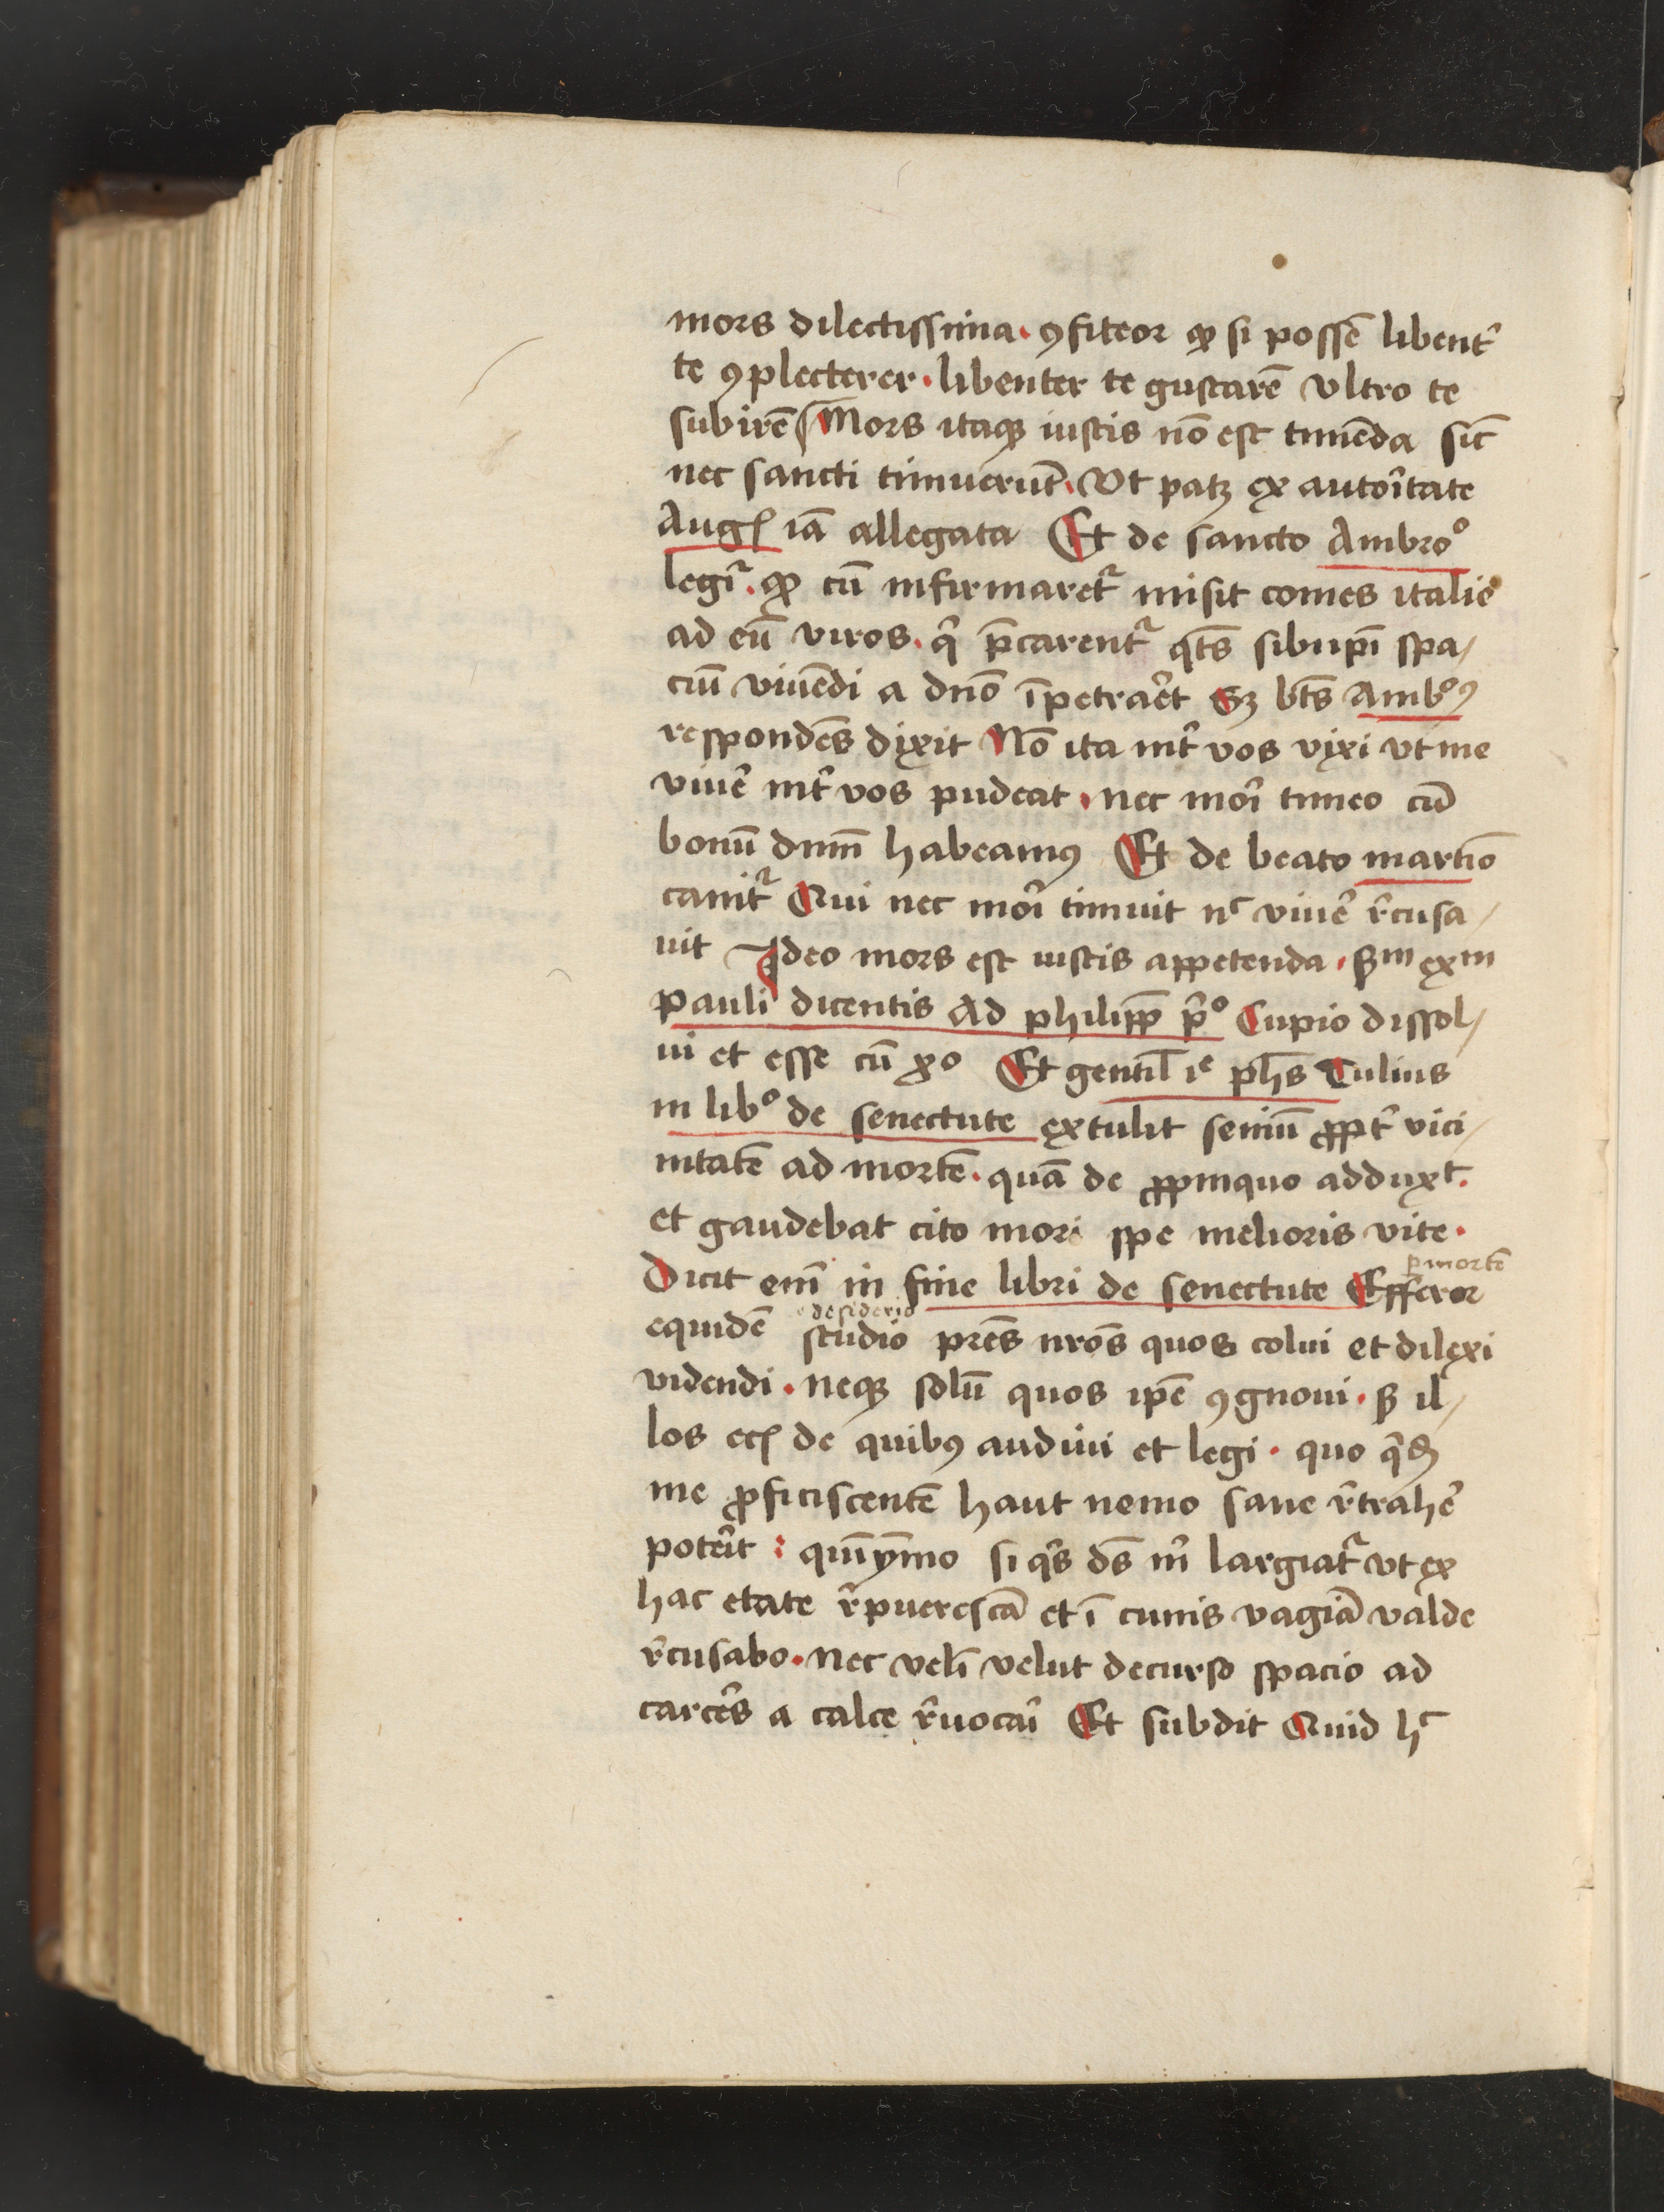 mors dilectissima · ꝯfiteor ꝙ si possē libent̾
te ꝯplecterer · libenter te gustarē vltro te
subirē Mors itaqꝫ iustis nō est timēda sic̄
nec sancti timuerūt · Vt patꝫ ex autor̾itate
Augꝭ iā allegata Et de sancto Ambroº
legit̾ · ꝙ cū infirmaret̾ misit comes italie
ad eū viros · q̾ p̄carent̾ qt̄s sibiip̄i spa/
ciū viuēdi a dn̄o īpetrar̾et Sꝫ bt̄s Ambºꝰ
respondēs dixit Nō ita int̾ vos vixi vt me
viuer̾ int̾ vos pudeat · nec mori̾ timeo cū
bonū dnm̄ habeamꝰ Et de beato martīo
canit̾ Qui nec mori̾ timuit nᶜ viuer̾ r̾cusa/
uit Ideo mors est iustis appetenda · ẜm exm
pauli dicentis Ad philipp̄ p̾º Cupio dissol/
ui et esse cū xº Et gentil̄ ie ph̄s Tulius
in libº de senectute extulit seniū ꝓpt̾ vici/
nitatē ad mortē · quā de ꝓpinquo adduxᵗ.
et gaudebat cito mori spe melioris vite ·
Dicit enī in fine libri de senectute Efferor
ꝑ mortē
equidē studio pr̄es nr̄os quos colui et dilexi
desiderio
videndi · neqꝫ solū quos ip̄e ꝯgnoui · ẜ il/
los ecꝭ de quibꝰ audiui et legi · quo q̾dē
me ꝓficiscentē haut nemo sane r̾traher̾
poter̾it : quīymo si q̾s ds̄ m̾ largiat̾ vt ex
hac etate r̾puerescā et ī cunis vagiā valde
r̾cusabo · nec velī velut decurso spacio ad
carcer̾s a calce r̾uocari̾ Et subdit Quid hᶜ